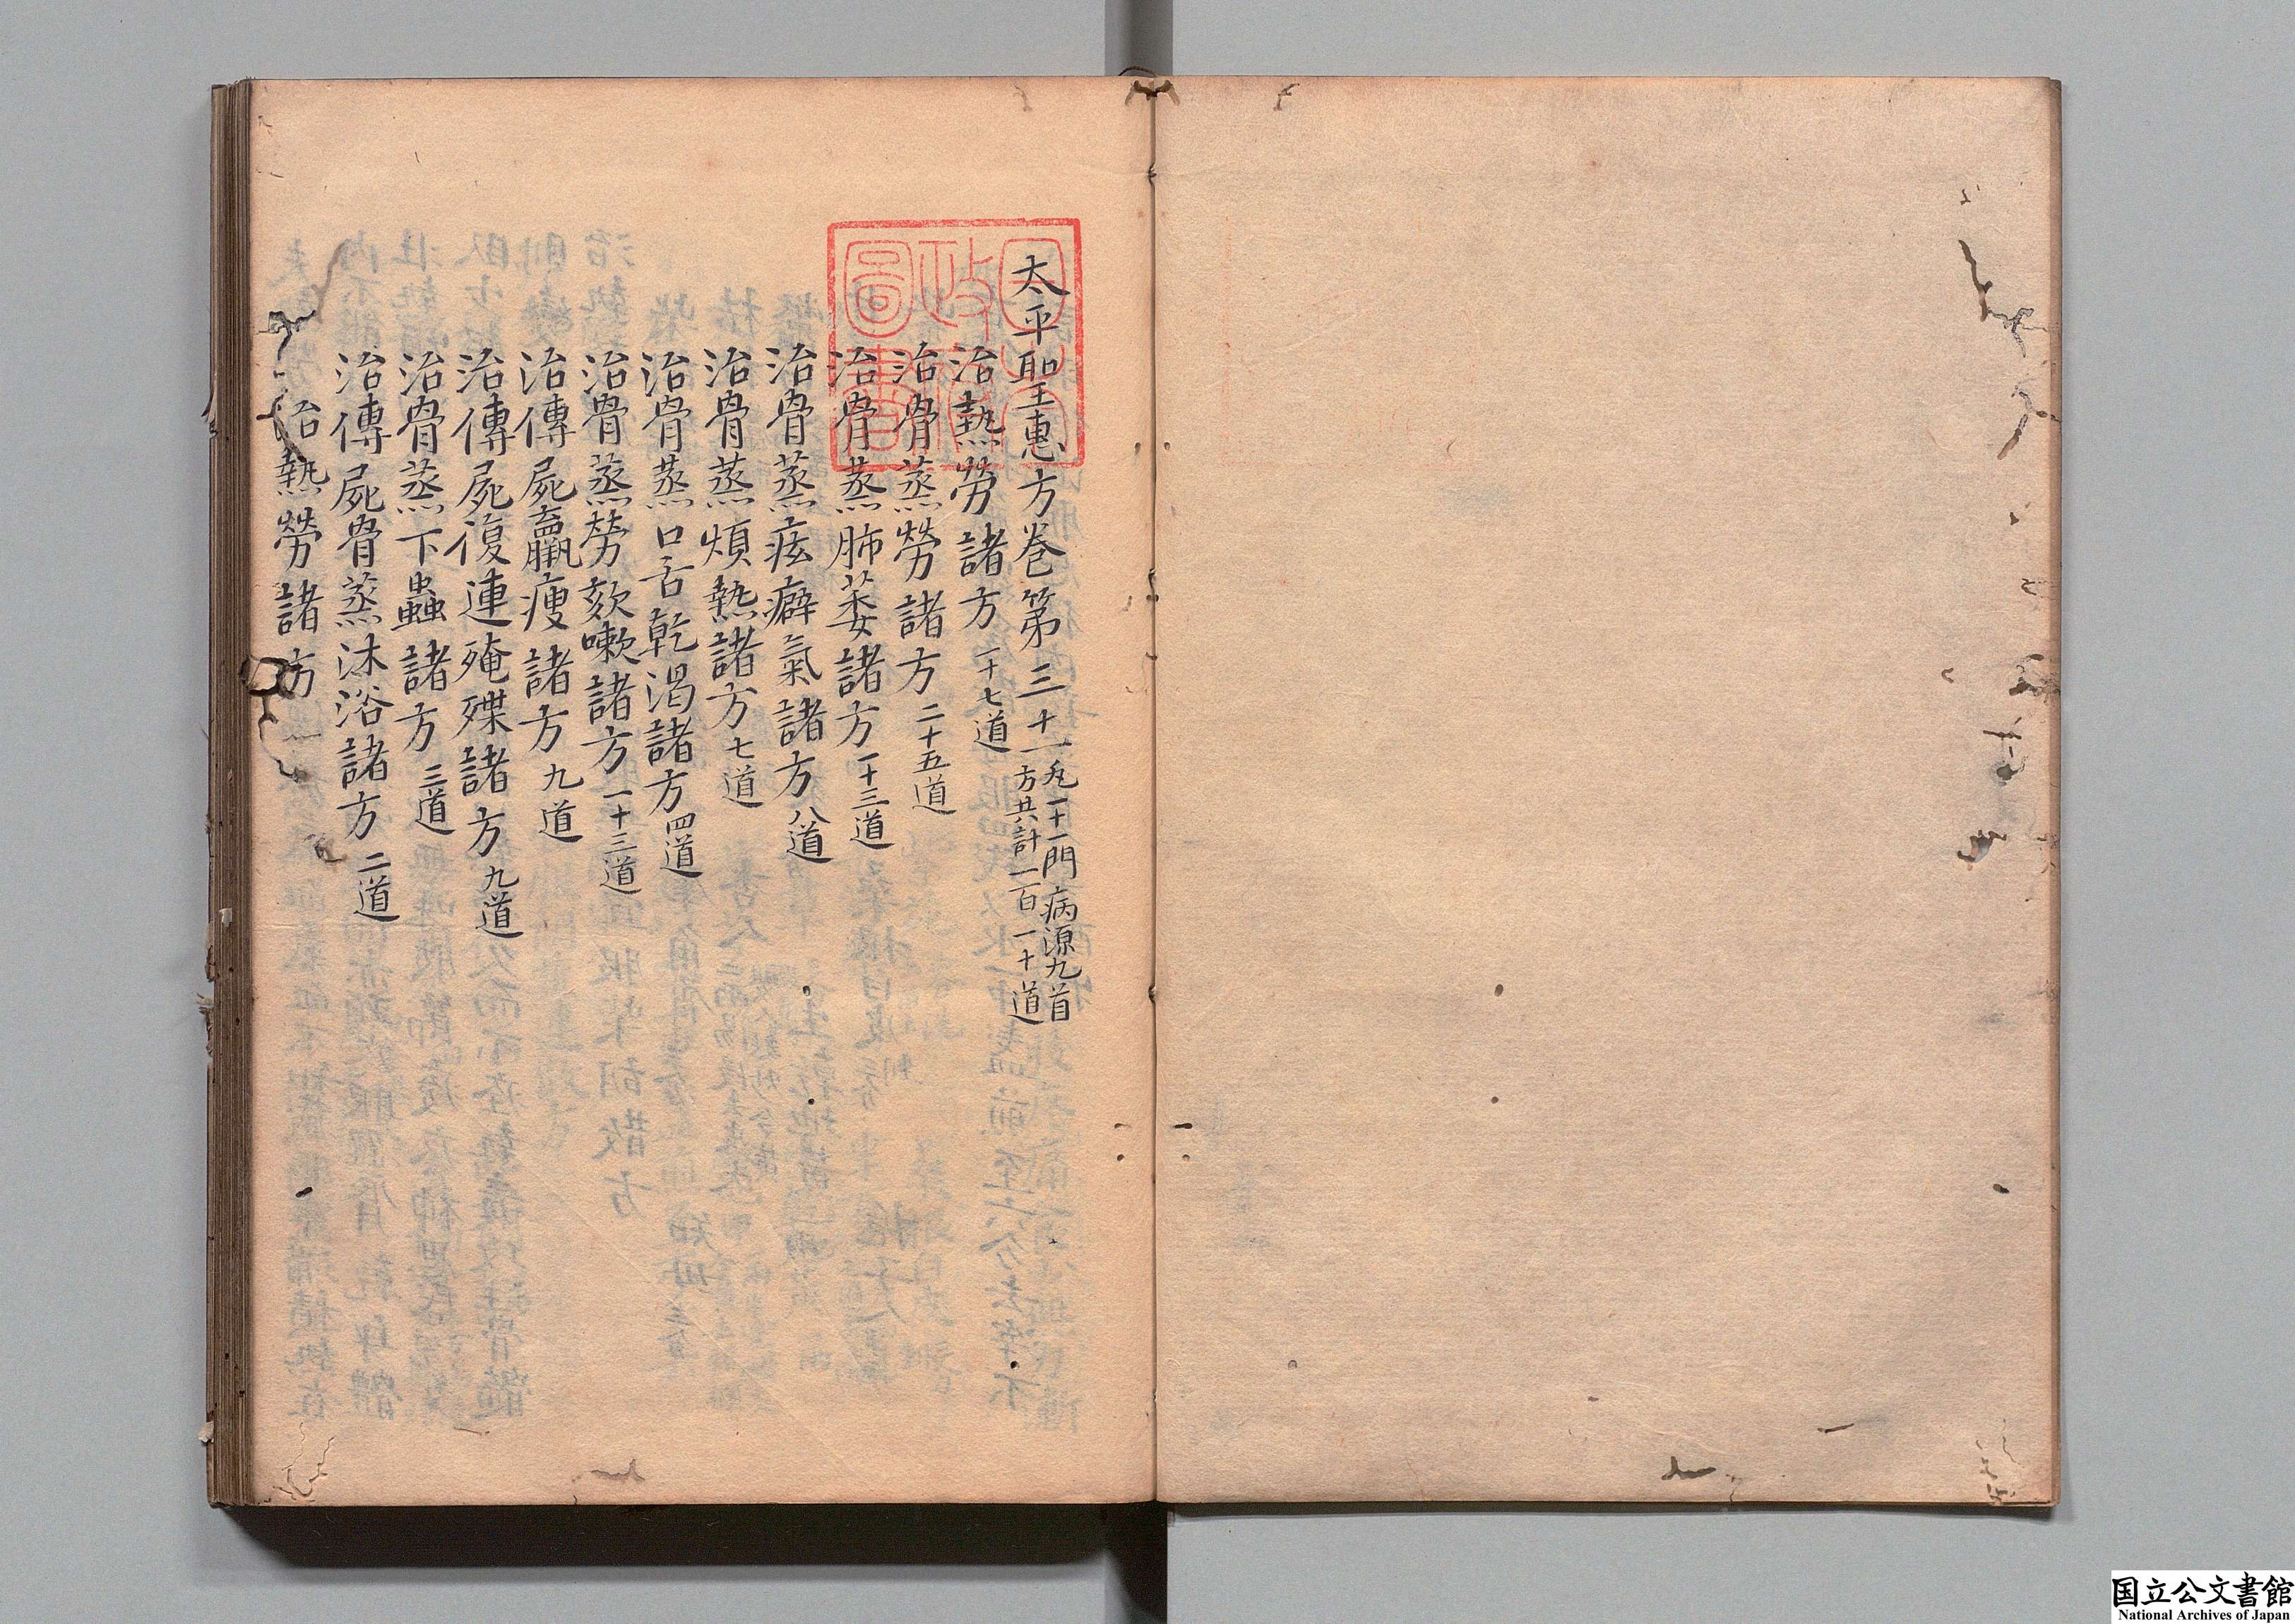 太平聖惠方卷第三十一 凡一十一門病源九首
方共計一百一十道
治熱勞諸方 一十七道
治骨蒸勞諸方 二十五道
治骨蒸肺萎諸方 一十三道
治骨蒸痃癖氣諸方 八道
治骨蒸煩熱諸方 七道
治骨蒸口舌乾渴諸方 四道
治骨蒸勞欬嗽諸方 一十三道
治傳屍羸瘦諸方 九道
治傳屍復連殗殜諸方 九道
治骨蒸下蟲諸方 三道
治傳屍骨蒸沐浴諸方 二道
治熱勞諸方
国立公文書館
National Archives of Japan